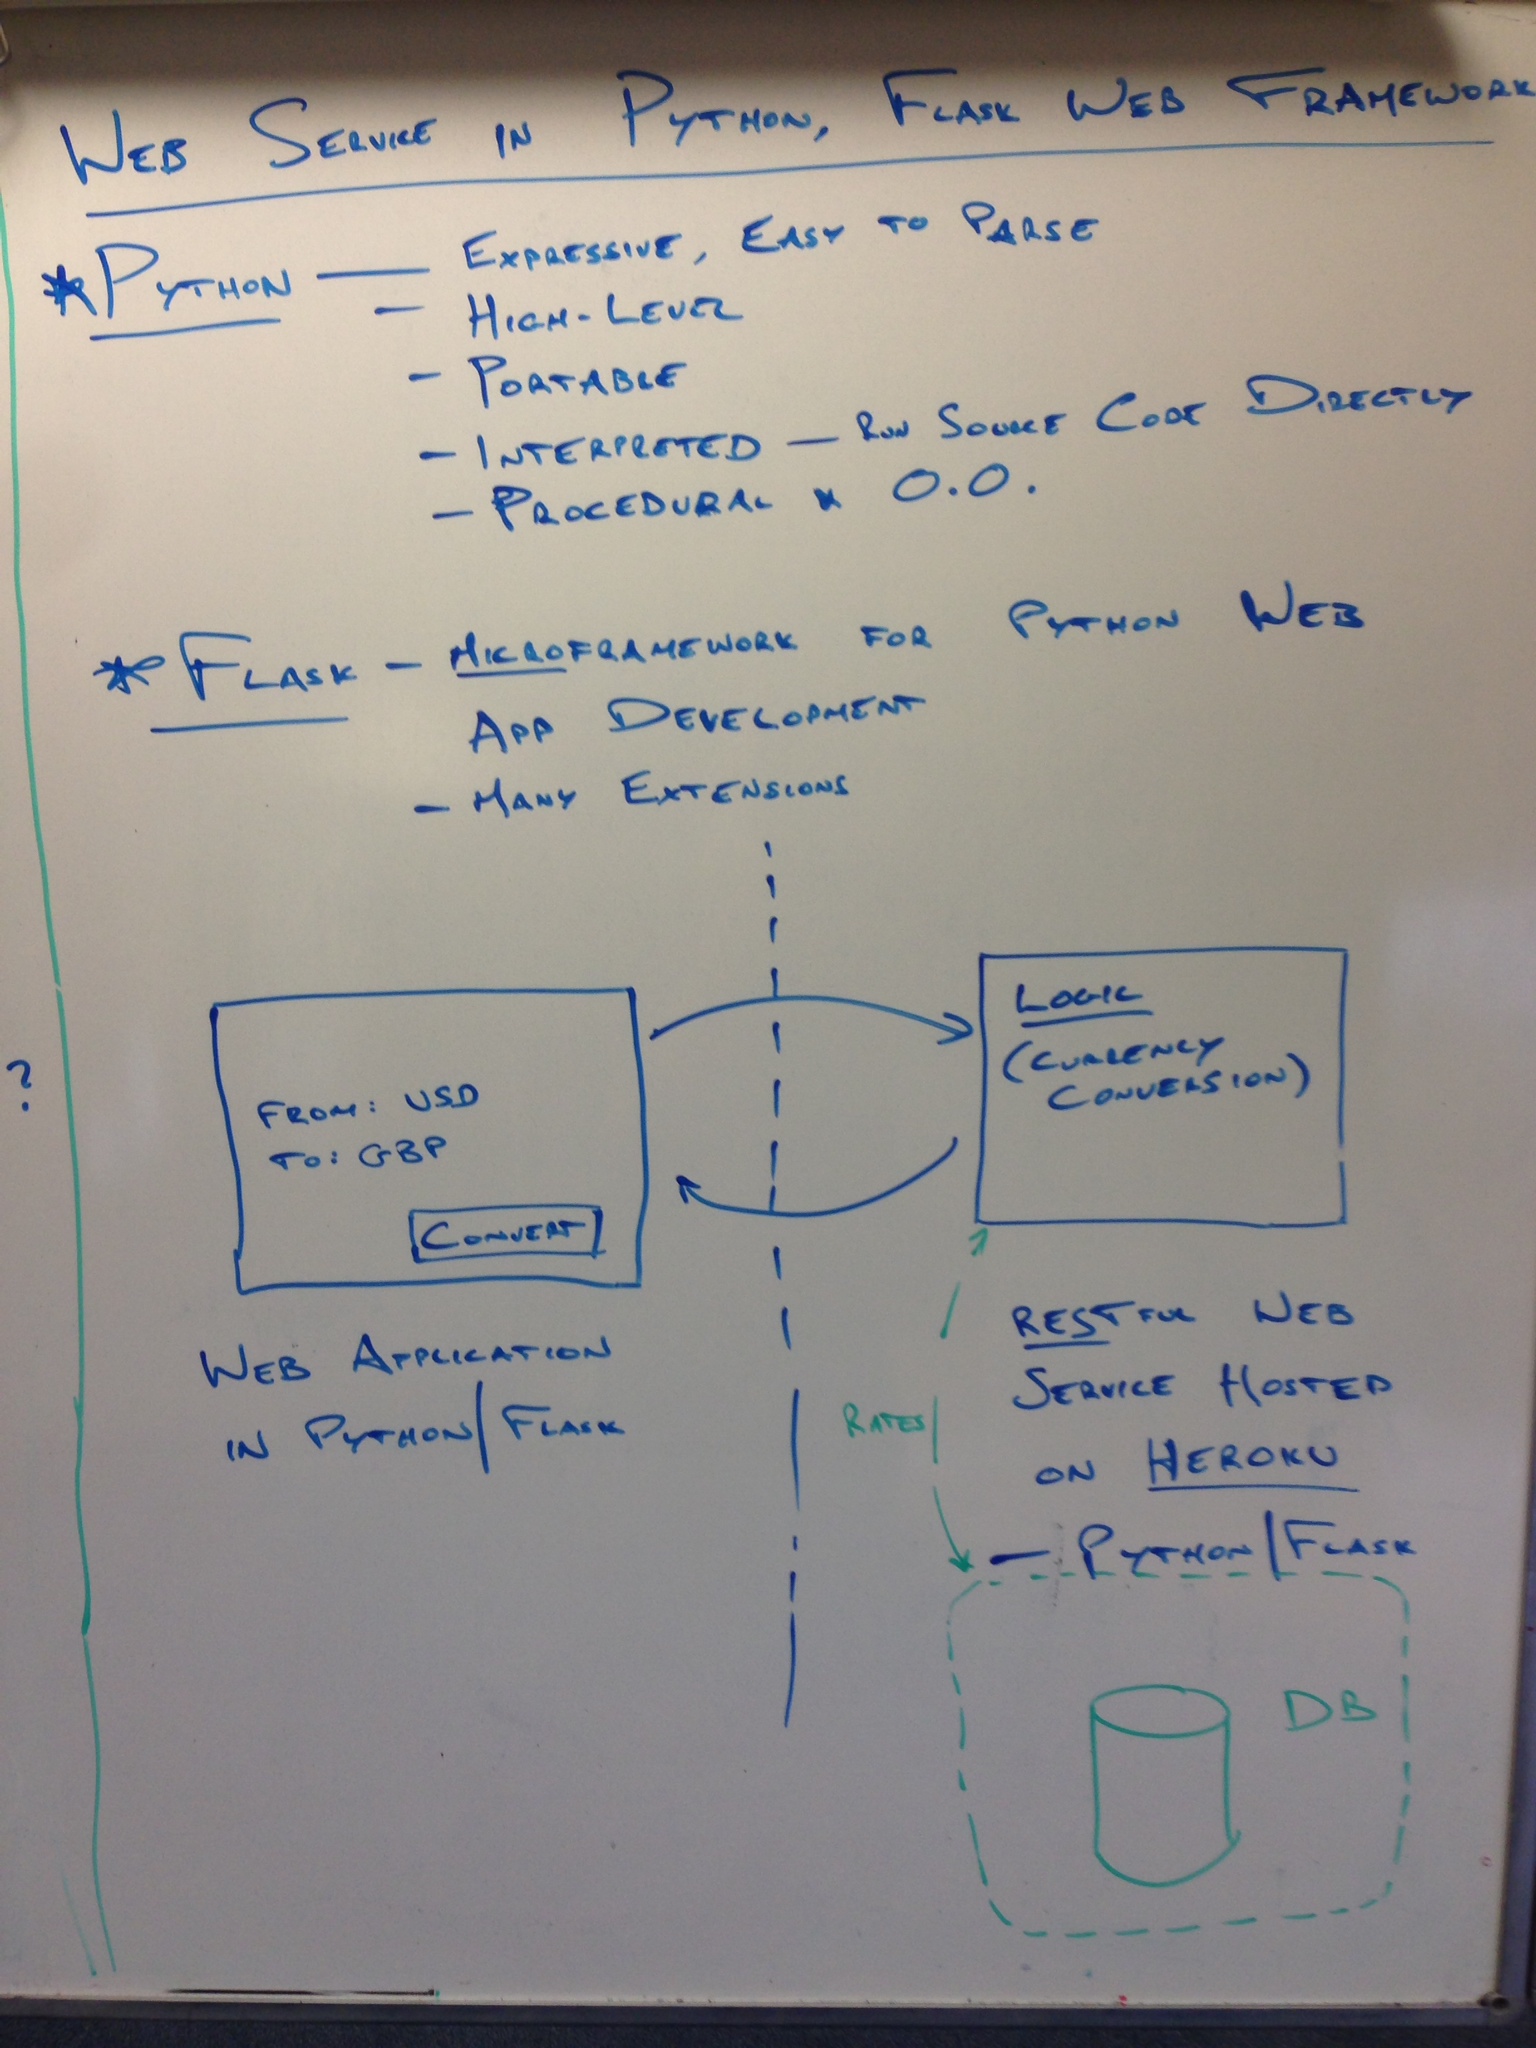 WEB SERVICE IN PYTHON, FLASK WEB FRAMEWORK
* PYTHON — EXPRESSIVE, EASY TO PARSE
- HIGH-LEVEL
- PORTABLE
- INTERPRETED — RUN SOURCE CODE DIRECTLY
- PROCEDURAL & O.O.
* FLASK - MICROFRAMEWORK FOR PYTHON WEB
APP DEVELOPMENT
- MANY EXTENSIONS
?
FROM: USD
TO: GBP
CONVERT
WEB APPLICATION
IN PYTHON/FLASK
LOGIC
(CURRENCY
CONVERSION)
RESTFUL WEB
SERVICE HOSTED
ON HEROKU
- PYTHON/FLASK
RATES
DB